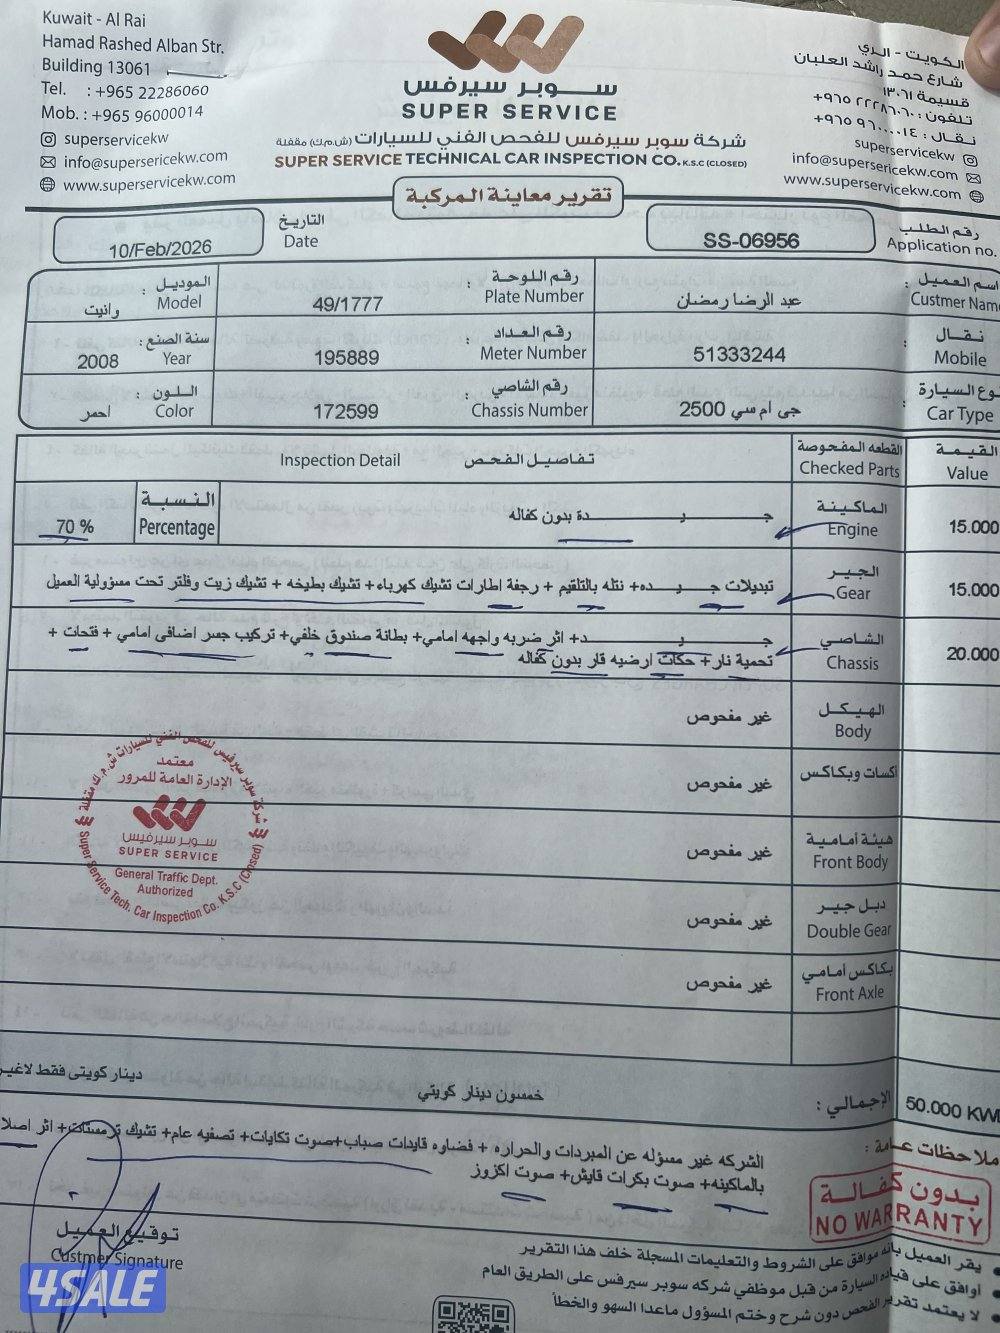 Kuwait - Al Rai
Hamad Rashed Alban Str.
Building 13061
Tel. : +965 22286060
Mob. : +965 96000014
superservicekw
info@supersericekw.com
www.superservicekw.com
سوبر سيرفس
SUPER SERVICE
شركة سوبر سيرفس للفحص الفني للسيارات (ش.م.ك) مقفلة
SUPER SERVICE TECHNICAL CAR INSPECTION CO. K.S.C (CLOSED)
الكويت - الري
شارع حمد راشد العلبان
قسيمة ١٣٠٦١
تلفون : ٢٢٢٨٦٠٦٠ ٩٦٥+
نقال : ٩٦٠٠٠٠١٤ ٩٦٥+
superservicekw
info@supersericekw.com
www.superservicekw.com
تقرير معاينة المركبة
10/Feb/2026
التاريخ
Date
SS-06956
رقم الطلب
Application no.
اسم العميل :
Custmer Name
عبد الرضا رمضان
رقم اللوحة :
Plate Number
49/1777
الموديل :
Model
وانيت
نقال :
Mobile
51333244
رقم العداد :
Meter Number
195889
سنة الصنع :
Year
2008
نوع السيارة :
Car Type
جى ام سي 2500
رقم الشاصي :
Chassis Number
172599
اللون :
Color
احمر
القيمة
Value
القطعه المفحوصة
Checked Parts
تفاصيل الفحص
Inspection Detail
15.000
الماكينة
Engine
جيدة بدون كفاله
النسبة
Percentage
70 %
15.000
الجير
Gear
تبديلات جيده+ نتله بالتلقيم + رجفة اطارات تشيك كهرباء+ تشيك بطيخه + تشيك زيت وفلتر تحت مسؤولية العميل
20.000
الشاصي
Chassis
جيد+ اثر ضربه واجهه امامي+ بطانة صندوق خلفي+ تركيب جسر اضافى امامي + فتحات +
تحمية نار+ حكات ارضيه قار بدون كفاله
الهيكل
Body
غير مفحوص
اكسات وبكاكس
غير مفحوص
هيئة أمامية
Front Body
غير مفحوص
دبل جير
Double Gear
غير مفحوص
بكاكس أمامي
Front Axle
غير مفحوص
شركة سوبر سيرفيس للفحص الفني للسيارات ش.م.ك مقفلة
معتمد
الإدارة العامة للمرور
سوبر سيرفيس
SUPER SERVICE
General Traffic Dept.
Authorized
Super Service Tech. Car Inspection Co. K.S.C (Closed)
50.000 KWD
الإجمالي :
خمسون دينار كويتي
دينار كويتى فقط لاغير
ملاحظات عامة :
الشركه غير مسؤله عن المبردات والحراره + فضاوه قايدات صباب+صوت تكايات+ تصفيه عام+ تشيك ترمستات+ اثر اصلا
بالماكينه+ صوت بكرات قايش+ صوت اكزوز
بدون كفالة
NO WARRANTY
توقيع العميل
Custmer Signature
يقر العميل بانه موافق على الشروط والتعليمات المسجلة خلف هذا التقرير
أوافق على قيادة السيارة من قبل موظفي شركه سوبر سيرفس على الطريق العام
لا يعتمد تقرير الفحص دون شرح وختم المسؤول ماعدا السهو والخطأ
4SALE